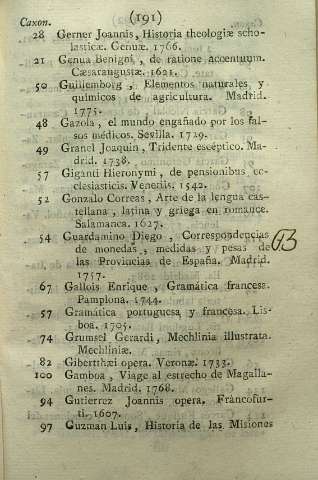 Caxon.
(191)
28 Gerner Joannis, Historia theologiæ scho-
lasticæ. Genuæ. 1766.
21 Genua Benigni, de ratione accentuum.
Cæsaraugustæ. 1621.
50 Guillemborg, Elementos naturales y
quimicos de agricultura. Madrid.
1775.
48 Gazola, el mundo engañado por los fal-
sos médicos. Sevilla. 1729.
49 Granel Joaquin, Tridente escéptico. Ma-
drid. 1738.
57 Giganti Hieronymi, de pensionibus ec-
clesiasticis. Venetiis. 1542.
52 Gonzalo Correas, Arte de la lengua cas-
tellana, latina y griega en romance.
Salamanca. 1627.
54 Guardamino Diego, Correspondencias
de monedas, medidas y pesas de
las Provincias de España. Madrid.
1757.
67 Gallois Enrique, Gramática francesa.
Pamplona. 1744.
57 Gramática portuguesa y francesa. Lis-
boa. 1705.
74 Grumsel Gerardi, Mechlinia illustrata.
Mechliniæ.
82 Gibertthæi opera. Veronæ. 1733.
100 Gamboa, Viage al estrecho de Magalla-
nes. Madrid. 1768.
94 Gutierrez Joannis opera. Francofur-
ti. 1607.
97 Guzman Luis, Historia de las Misiones